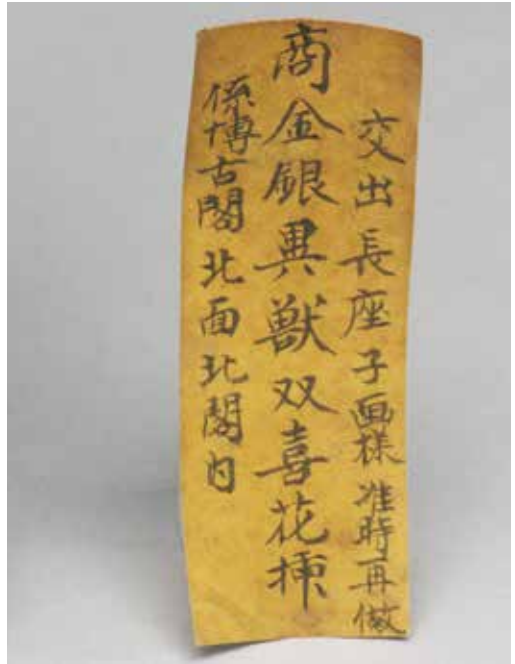 交出長座子画樣准時再做
商金銀異獸双喜花揷
係博古閣北面北閣内